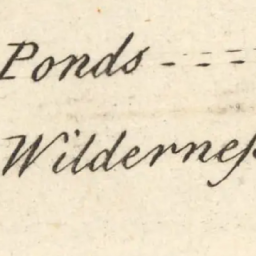 Ponds - - - -
Wilderneſs